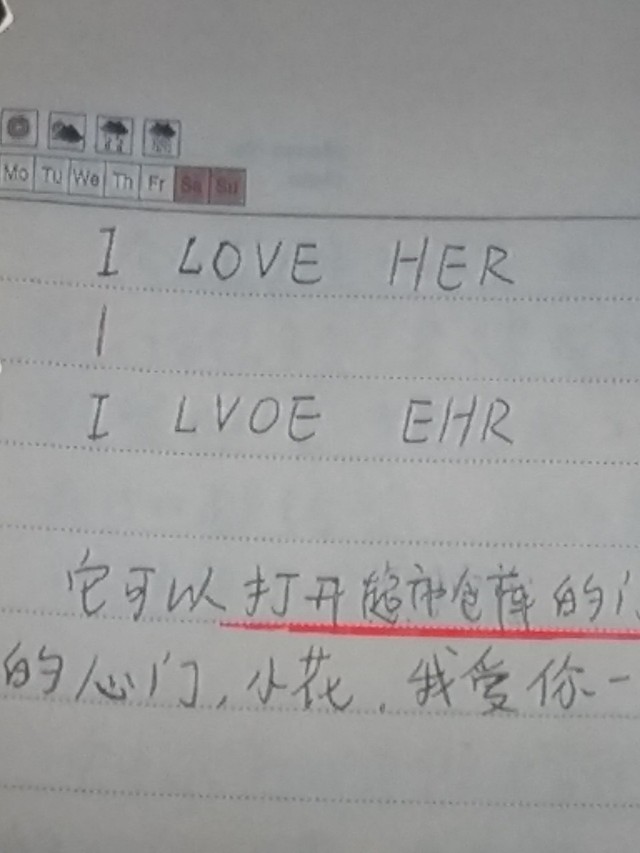 Mo Tu We Th Fr Sa Su
I LOVE HER
I
I LVOE EHR
它可以打开超市仓库的门
的心门,小花,我爱你一